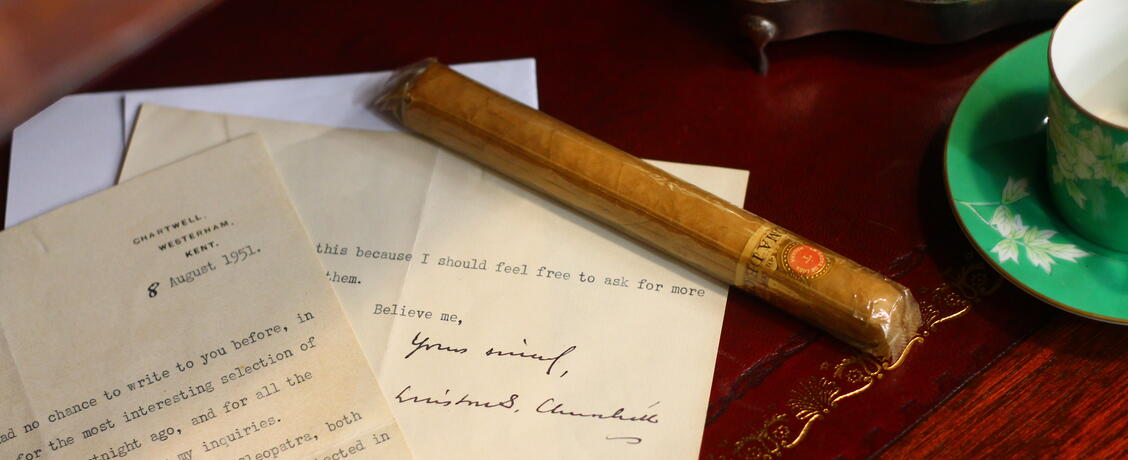 CHARTWELL,
WESTERHAM,
KENT.
8 August 1951.
ad no chance to write to you before, in
for the most interesting selection of
tnight ago, and for all the
my inquiries.
leopatra, both
ected in
this because I should feel free to ask for more
them.
Believe me,
Yours sincerely,
Winston S. Churchill